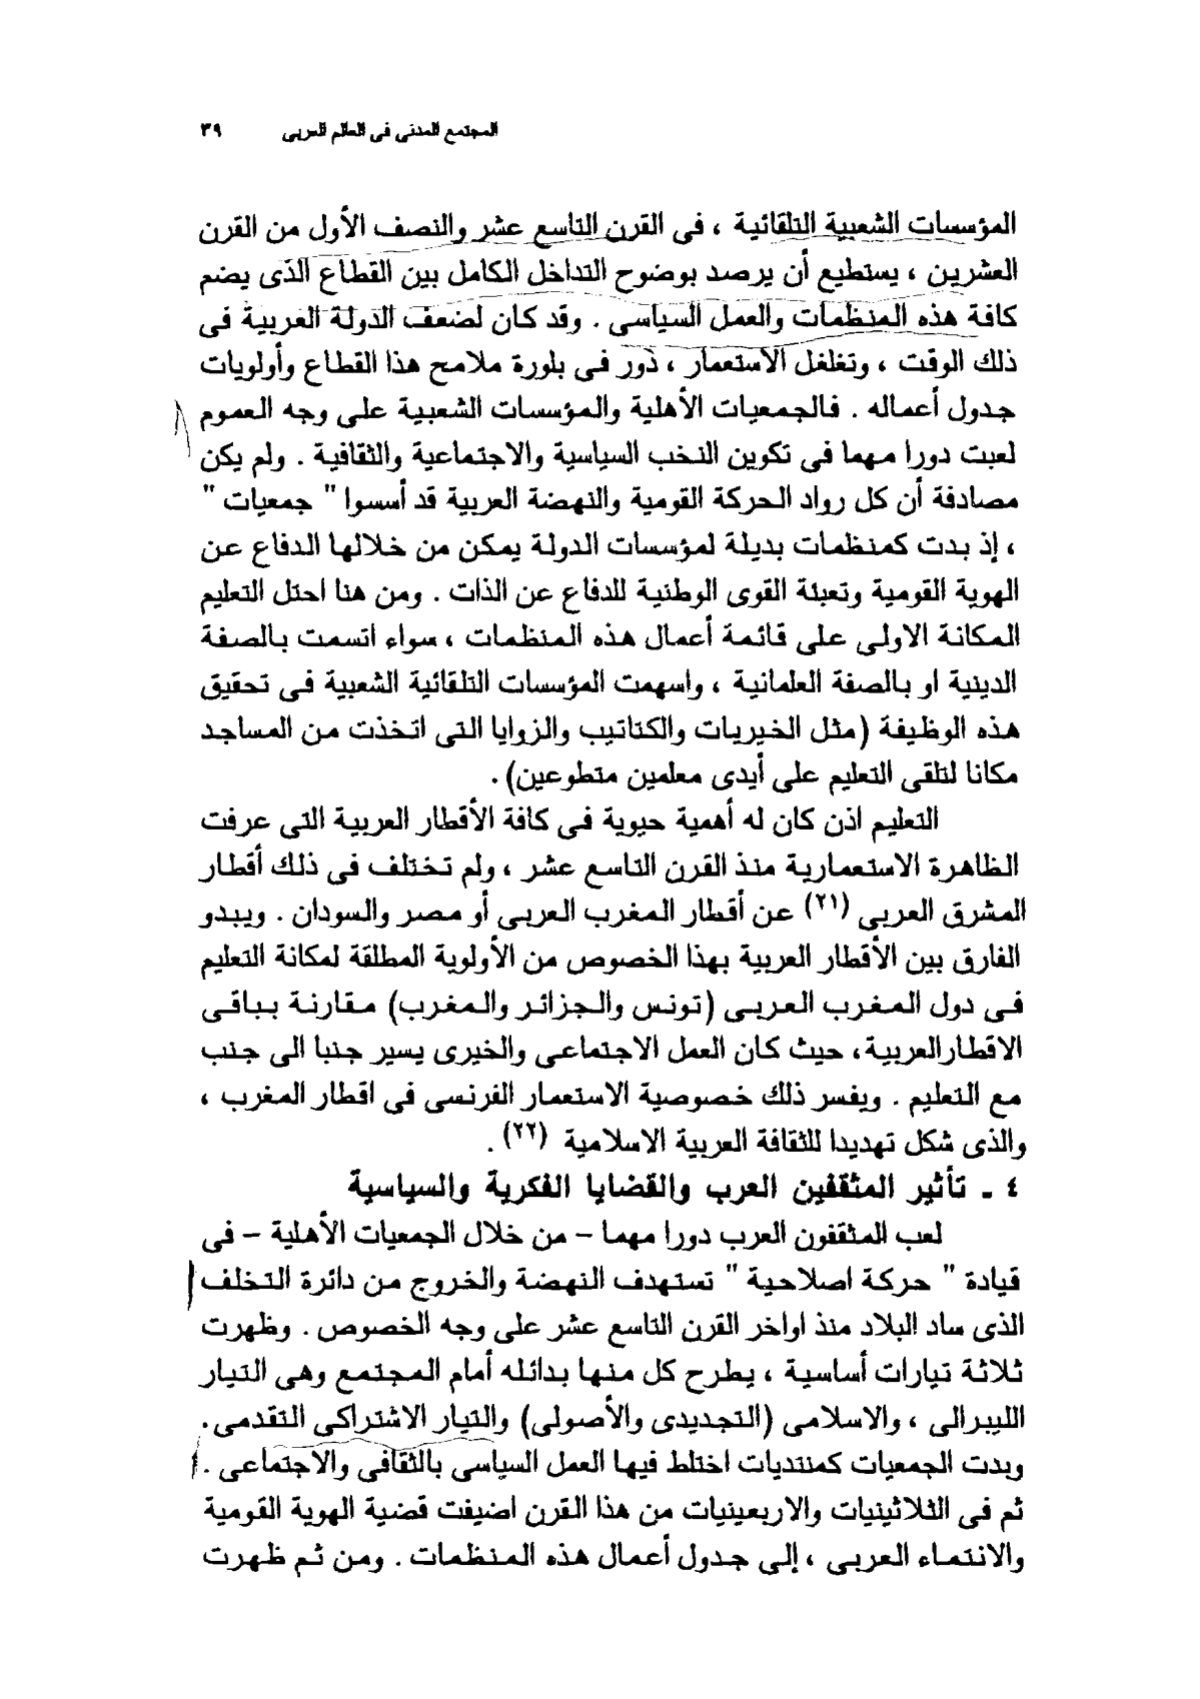 المجتمع المدنى فى العالم العربى ٣٩
المؤسسات الشعبية التلقائية ، فى القرن التاسع عشر والنصف الأول من القرن
العشرين ، يستطيع أن يرصد بوضوح التداخل الكامل بين القطاع الذى يضم
كافة هذه المنظمات والعمل السياسى . وقد كان لضعف الدولة العربية فى
ذلك الوقت ، وتغلغل الاستعمار ، دور فى بلورة ملامح هذا القطاع وأولويات
جدول أعماله . فالجمعيات الأهلية والمؤسسات الشعبية على وجه العموم
لعبت دورا مهما فى تكوين النخب السياسية والاجتماعية والثقافية . ولم يكن
مصادفة أن كل رواد الحركة القومية والنهضة العربية قد أسسوا " جمعيات "
، إذ بدت كمنظمات بديلة لمؤسسات الدولة يمكن من خلالها الدفاع عن
الهوية القومية وتعبئة القوى الوطنية للدفاع عن الذات . ومن هنا احتل التعليم
المكانة الاولى على قائمة أعمال هذه المنظمات ، سواء اتسمت بالصفة
الدينية او بالصفة العلمانية ، واسهمت المؤسسات التلقائية الشعبية فى تحقيق
هذه الوظيفة (مثل الخيريات والكتاتيب والزوايا التى اتخذت من المساجد
مكانا لتلقى التعليم على أيدى معلمين متطوعين) .
التعليم اذن كان له أهمية حيوية فى كافة الأقطار العربية التى عرفت
الظاهرة الاستعمارية منذ القرن التاسع عشر ، ولم تختلف فى ذلك أقطار
المشرق العربى (٢١) عن أقطار المغرب العربى أو مصر والسودان . ويبدو
الفارق بين الأقطار العربية بهذا الخصوص من الأولوية المطلقة لمكانة التعليم
فى دول المغرب العربى (تونس والجزائر والمغرب) مقارنة بباقى
الاقطارالعربية، حيث كان العمل الاجتماعى والخيرى يسير جنبا الى جنب
مع التعليم . ويفسر ذلك خصوصية الاستعمار الفرنسى فى اقطار المغرب ،
والذى شكل تهديدا للثقافة العربية الاسلامية (٢٢) .
٤ ـ تأثير المثقفين العرب والقضايا الفكرية والسياسية
لعب المثقفون العرب دورا مهما – من خلال الجمعيات الأهلية – فى
قيادة " حركة اصلاحية " تستهدف النهضة والخروج من دائرة التخلف
الذى ساد البلاد منذ اواخر القرن التاسع عشر على وجه الخصوص . وظهرت
ثلاثة تيارات أساسية ، يطرح كل منها بدائله أمام المجتمع وهى التيار
الليبرالى ، والاسلامى (التجديدى والأصولى) والتيار الاشتراكى التقدمى .
وبدت الجمعيات كمنتديات اختلط فيها العمل السياسى بالثقافى والاجتماعى .
ثم فى الثلاثينيات والاربعينيات من هذا القرن اضيفت قضية الهوية القومية
والانتماء العربى ، إلى جدول أعمال هذه المنظمات . ومن ثم ظهرت